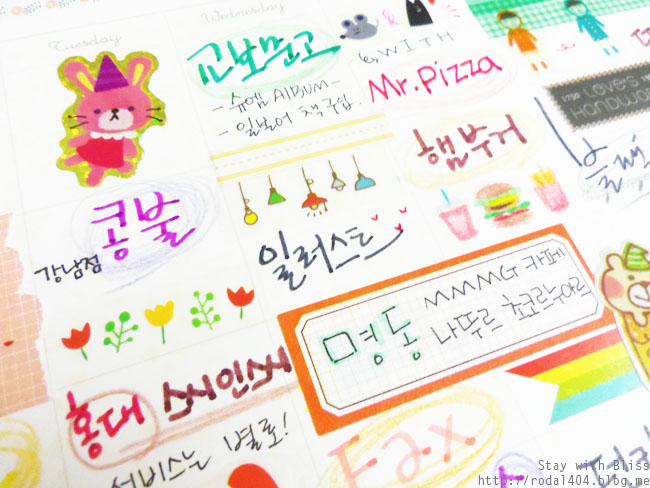 Tuesday
Wednesday
교보문고
- 슈엠 ALBUM -
- 일본어 책 구입.
&
WITH
Mr.Pizza
LOVE'S
HANDWOR
햄부거
콩불
강남점
일러스트
명동
MMMG 카페
나뚜루 쵸코르누아르
홍대
쏘인쏘
서비스는 별로!
Fax
Stay with Bliss
http://rodal404.blog.me